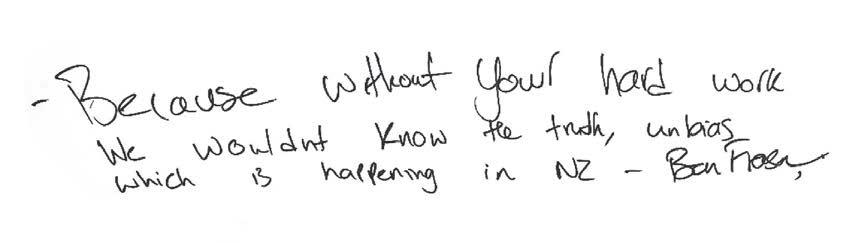 - Because without your hard work
We wouldnt know the truth, unbias
which is happening in NZ - Ben